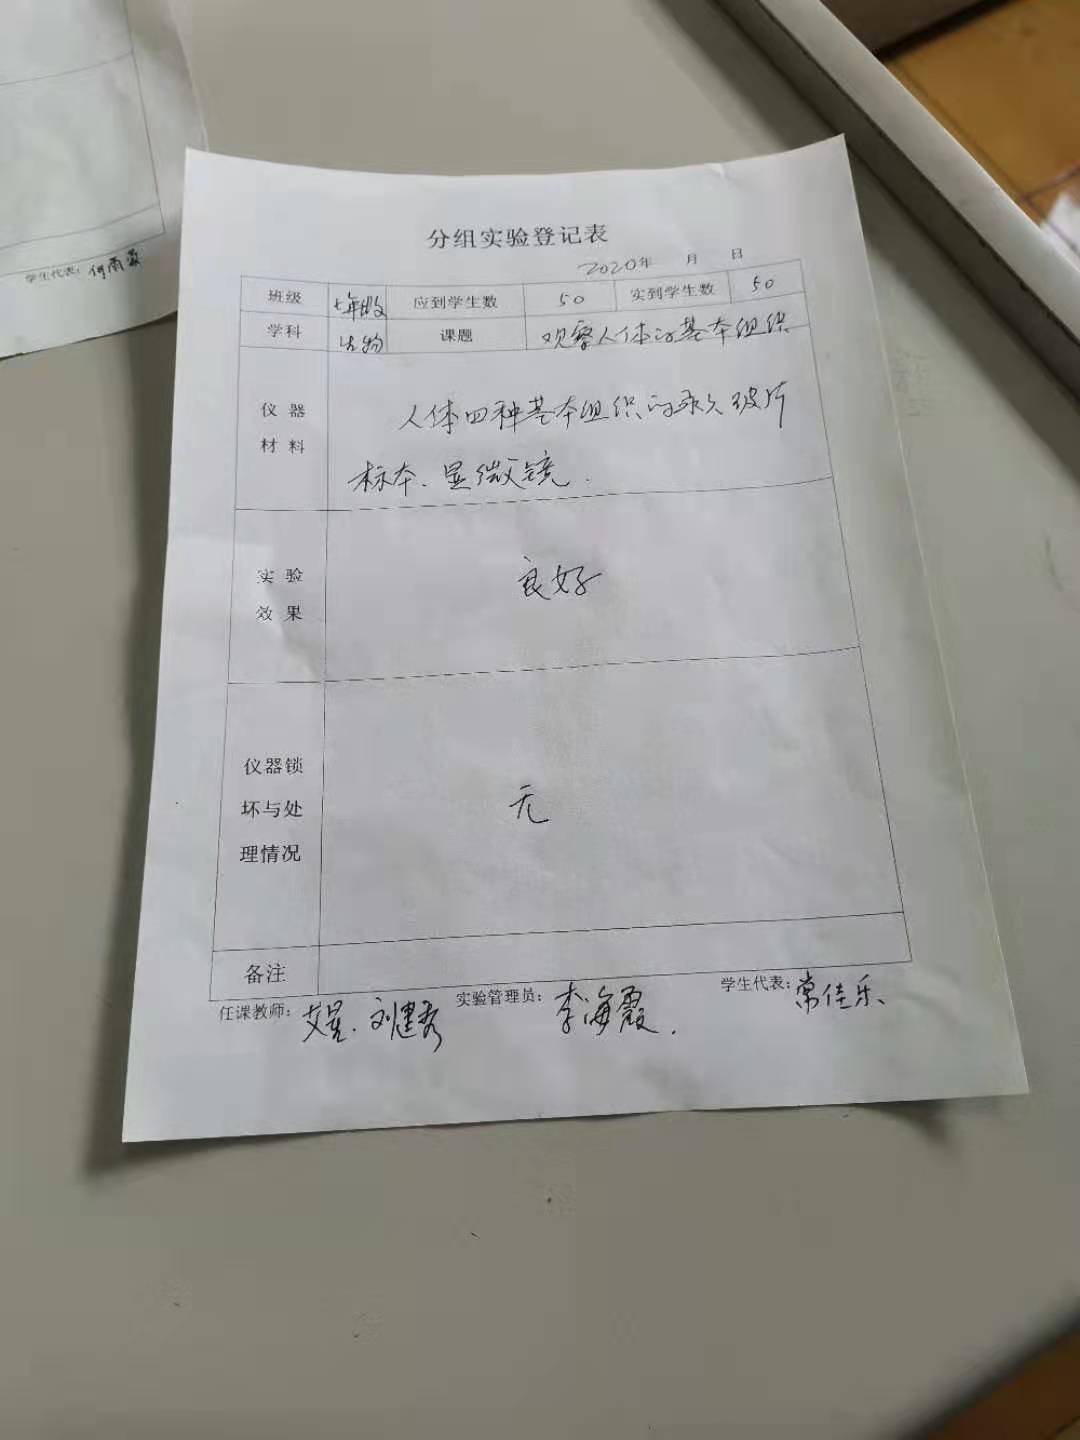 学生代表：
分组实验登记表
2020年 月 日
班级 七年级 应到学生数 50 实到学生数 50
学科 生物 课题 观察人体的基本组织
仪器
材料
人体四种基本组织的永久玻片
标本、显微镜.
实验
效果
良好
仪器锁
坏与处
理情况
无
备注
任课教师： 刘建秀 实验管理员： 李海霞. 学生代表： 常佳乐